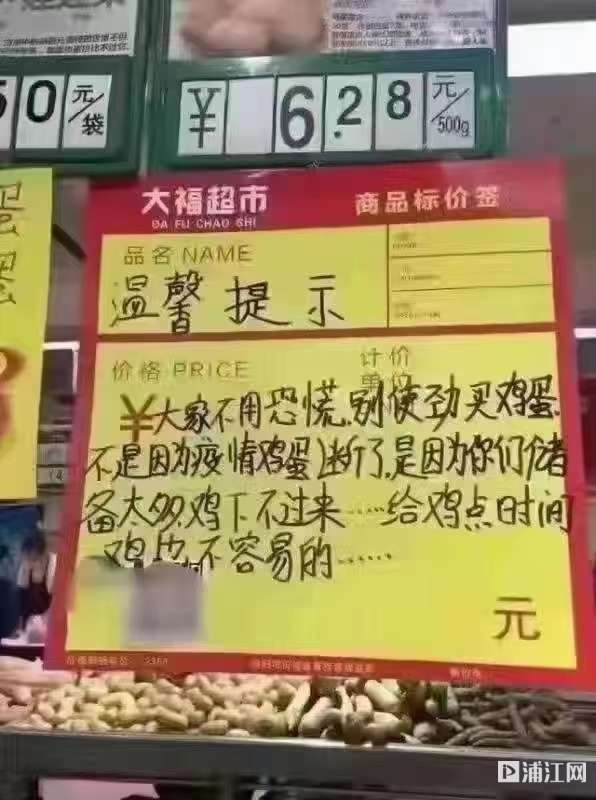 50 元/袋
¥ 6.28 元/500g
大福超市 商品标价签
DA FU CHAO SHI
品名 NAME
温馨提示
价格 PRICE 计价单位
¥大家不用恐慌,别使劲买鸡蛋,
不是因为疫情鸡蛋断了,是因为你们储
备太多,鸡下不过来……给鸡点时间
鸡也不容易的……
元
浦江网